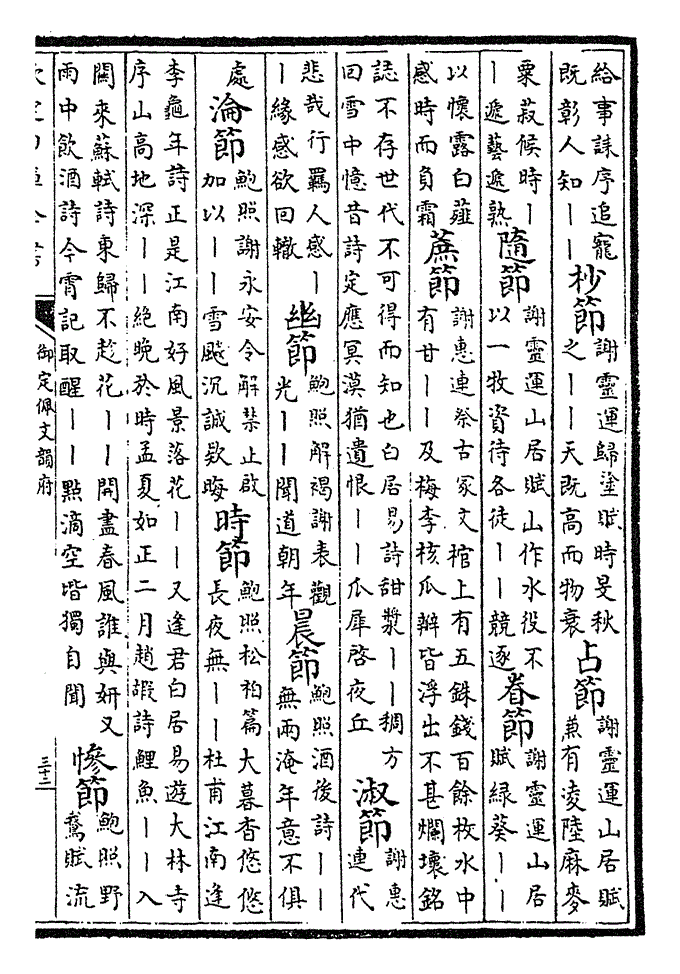 給事誄序追寵既彰人知｜｜杪節謝靈運歸塗賦時旻秋之｜｜天既高而物衰占節謝靈運山居賦兼有凌陸麻麥
粟菽候時｜｜遞藝遞熟隨節謝靈運山居賦山作水役不以一牧資待各徒｜｜競逐眷節謝靈運山居賦綠葵｜｜
以懷露白薤感時而負霜蔗節謝惠連祭古冢文棺上有五銖錢百餘枚水中有甘｜｜及梅李核瓜瓣皆浮出不甚爛壞銘
誌不存世代不可得而知也白居易詩甜漿｜｜稠方回雪中憶昔詩定應冥漠猶遺恨｜｜瓜犀啓夜丘淑節謝惠連代
悲哉行羈人感｜｜緣感欲回轍幽節鮑照解褐謝表觀光｜｜聞道朝年晨節鮑照酒後詩｜｜無兩淹年意不俱
處淪節鮑照謝永安令解禁止啟加以｜｜雪飈沉誠款晦時節鮑照松柏篇大暮杳悠悠長夜無｜｜杜甫江南逢
李龜年詩正是江南好風景落花｜｜又逢君白居易遊大林寺序山高地深｜｜絕晚於時孟夏如正二月趙嘏詩鯉魚｜｜入
闗來蘇軾詩東歸不趂花｜｜開盡春風誰與妍又雨中飲酒詩今霄記取醒｜｜點滴空堦獨自聞慘節鮑照野鵞賦流
御定佩文韻府
三十二